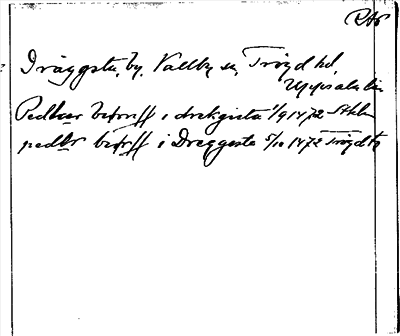 RAp
Dräggsta, by, Vallby sn, Trögd hd,
Uppsala län
Pedhær betreff i drekgista 1/9 1472 Sthlm
pedhr betreff i Dreggesta 5/10 1472 Trögd h